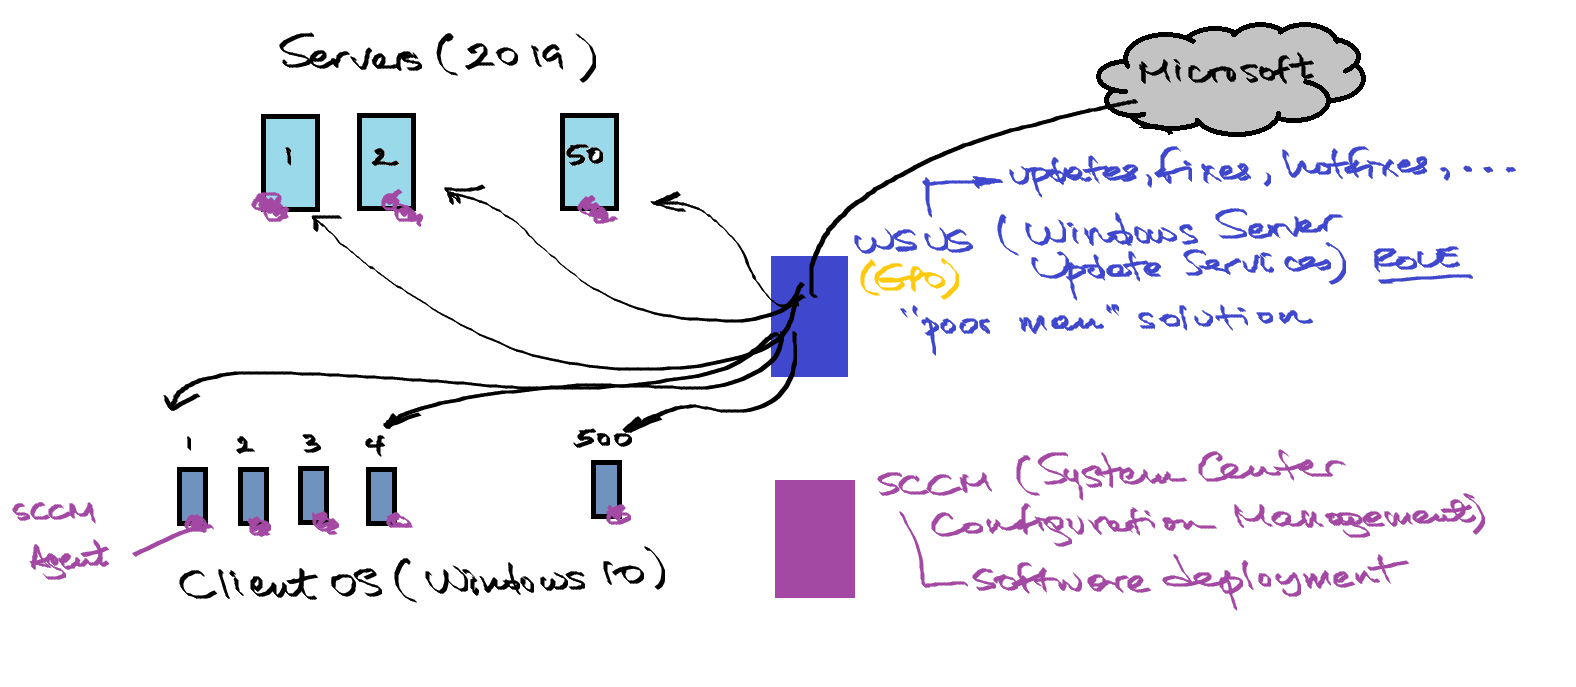 Servers (2019)
1
2
50
Microsoft
updates, fixes, hotfixes, ...
WSUS (Windows Server
Update Services) ROLE
(GPO)
"poor man" solution
1
2
3
4
500
SCCM
Agent
Client OS (Windows 10)
SCCM (System Center
Configuration Management)
software deployment